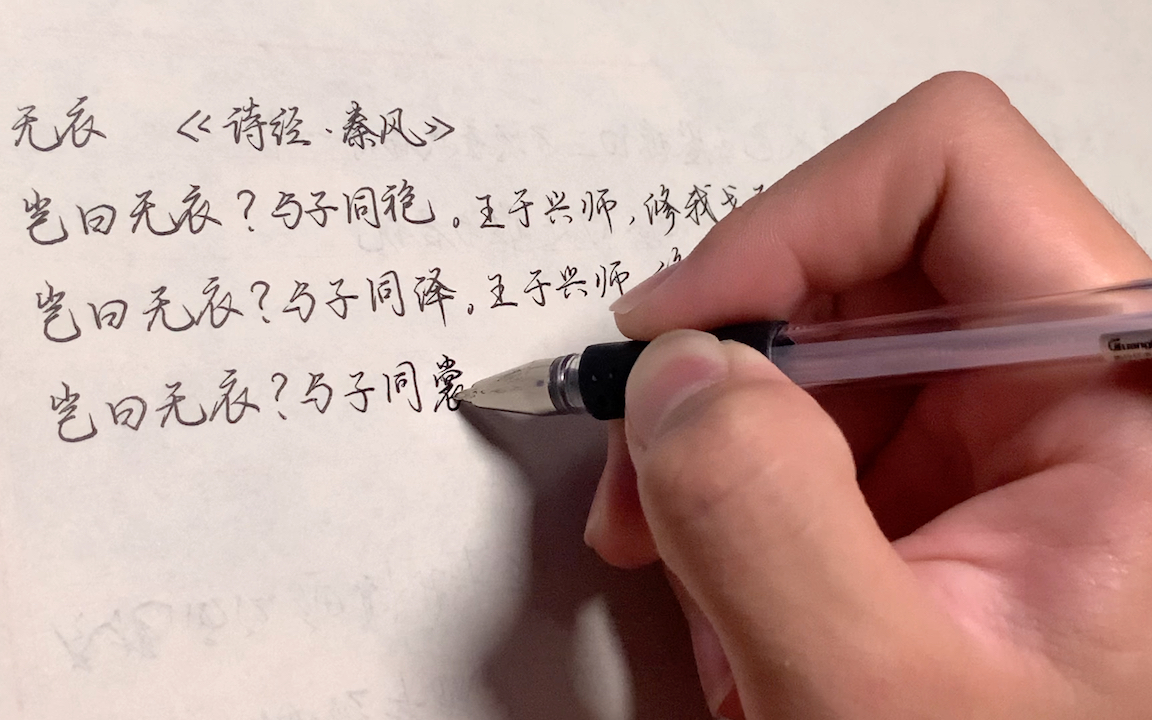 无衣 《诗经·秦风》
岂曰无衣？与子同袍。王于兴师，修我戈
岂曰无衣？与子同泽。王于兴师
岂曰无衣？与子同裳